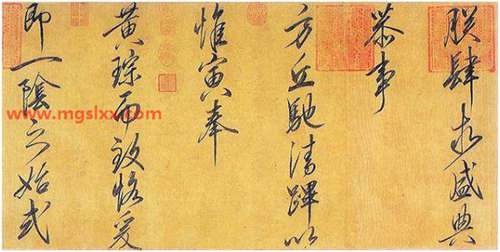 朕肆求盛典
恭事
方丘馳清蹕以
惟寅奉
黃琮而致恪爰
即一陰之始式
www.mgslxx.com